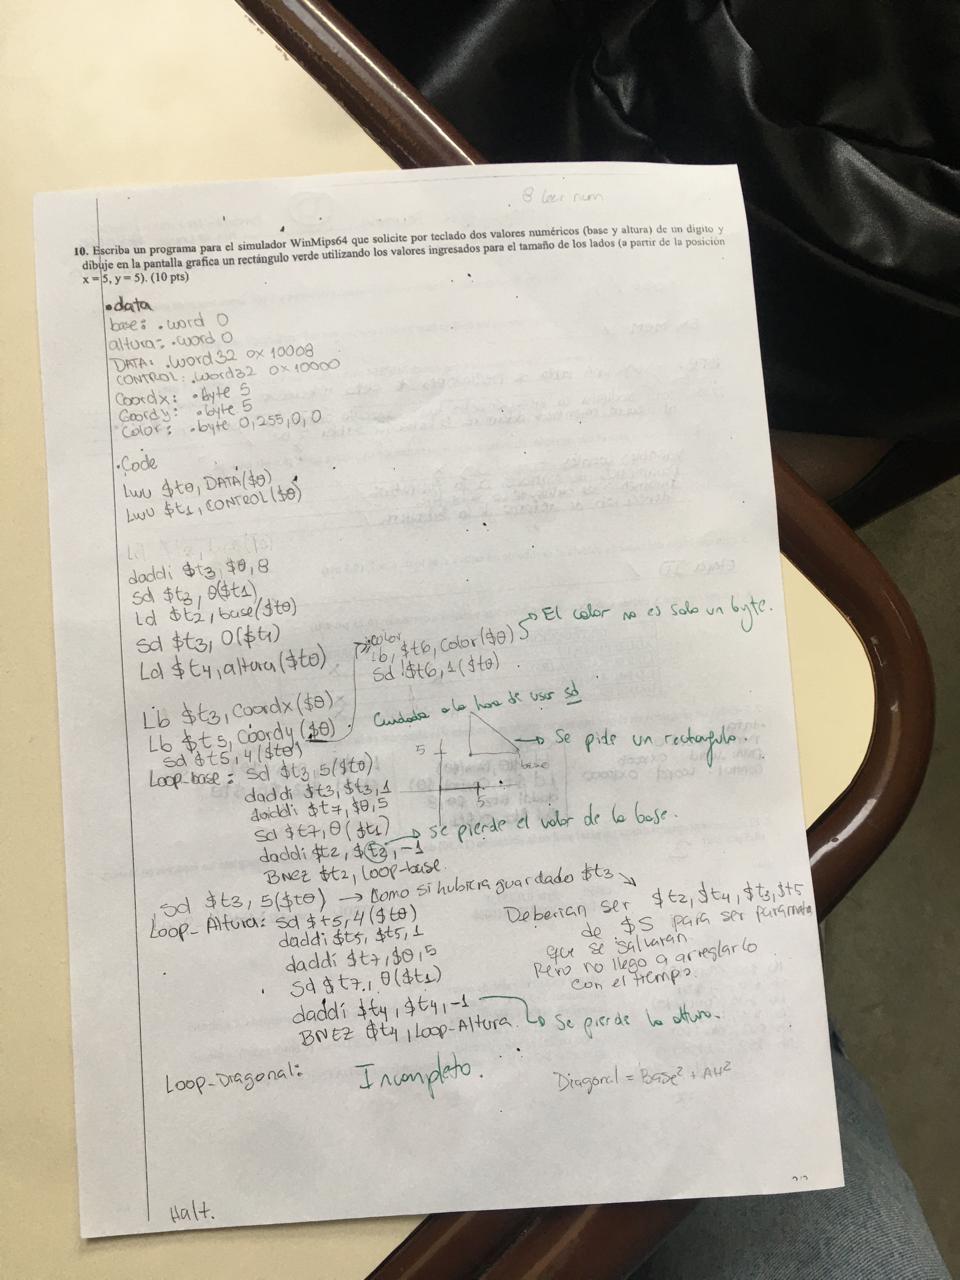 8 leer num
10. Escriba un programa para el simulador WinMips64 que solicite por teclado dos valores numéricos (base y altura) de un dígito y
dibuje en la pantalla grafica un rectángulo verde utilizando los valores ingresados para el tamaño de los lados (a partir de la posición
x = 5, y = 5). (10 pts)
.data
base: .word 0
altura: .word 0
DATA: .word32 0x10008
CONTROL: .word32 0x10000
Coordx: .byte 5
Coordy: .byte 5
Color: .byte 0,255,0,0
.Code
Lwu $t0, DATA($0)
Lwu $t1, CONTROL($0)
daddi $t3, $0, 8
sd $t3, 0($t1)
Ld $t2, base($t0)
Sd $t3, 0($t1)
Ld $t4, altura($t0)
;color
Lb, $t6, Color($0)
Sd $t6, 1($t0)
El color no es solo un byte.
Lb $t3, Coordx($0)
Lb $t5, Coordy($0)
sd $t5, 4($t0)
Cuidado a la hora de usar sd
5
base
5
Se pide un rectangulo.
Loop-base: sd $t3, 5($t0)
daddi $t3, $t3, 1
daddi $t7, $0, 5
Sd $t7, 0($t1)
daddi $t2, $t2, -1
se pierde el valor de la base.
BNEZ $t2, Loop-base
sd $t3, 5($t0) → Como si hubiera guardado $t3
Loop_Altura: sd $t5, 4($t0)
daddi $t5, $t5, 1
daddi $t7, $0, 5
Sd $t7, 0($t1)
daddi $t4, $t4, -1
BNEZ $t4, Loop-Altura
Se pierde la altura.
Deberian ser $t2, $t4, $t3, $t5
de $S para ser
que se salvaran.
Pero no llego a arreglarlo
con el tiempo.
Loop-Diagonal:
Incompleto.
Diagonal = Base² + Alt²
Halt.